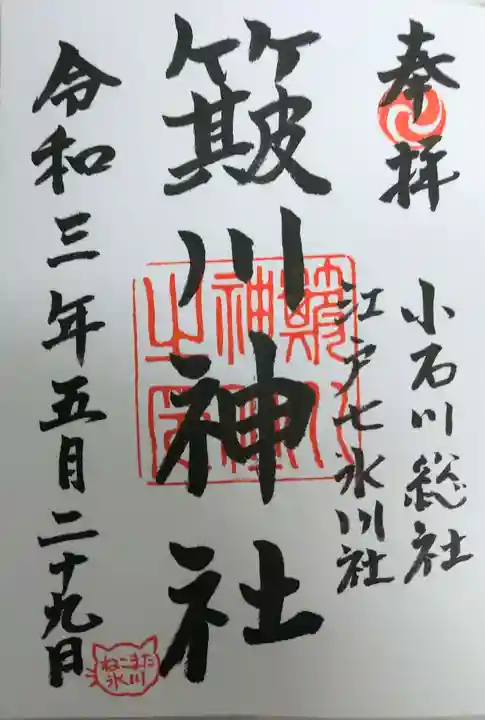 奉拝
小石川総社
江戸七氷川社
簸川神社
令和三年五月二十九日
ねこまた
氷川